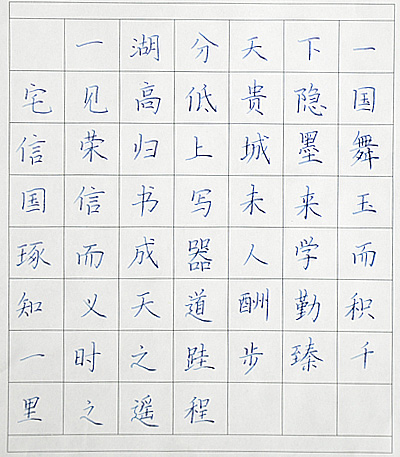 一湖分天下一
宅见高低贵隐国
信荣归上城墨舞
国信书写未来玉
琢而成器人学而
知义天道酬勤积
一时之跬步臻千
里之遥程